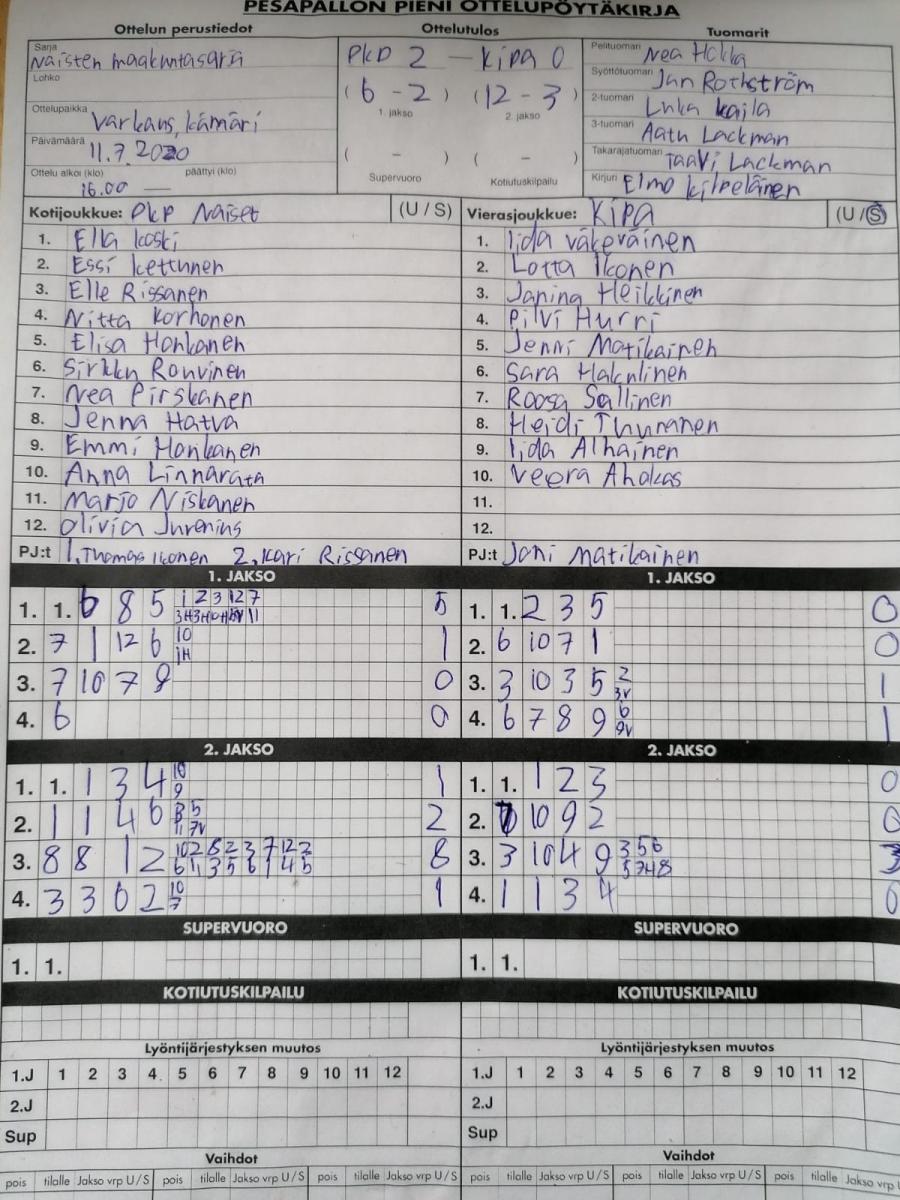 PESÄPALLON PIENI OTTELUPÖYTÄKIRJA
Ottelun perustiedot
Sarja
Naisten maakuntasarja
Lohko
Ottelupaikka
Varkaus, Kämäri
Päivämäärä
11.7.2020
Ottelu alkoi (klo) päättyi (klo)
16.00 —
Ottelutulos
PKP 2 — Kipa 0
(6 - 2) (12 - 3)
1. jakso 2. jakso
( - ) ( - )
Supervuoro Kotiutuskilpailu
Tuomarit
Pelituomari Nea Hokka
Syöttötuomari Jan Rothström
2-tuomari Luka Kaila
3-tuomari Aatu Lackman
Takarajatuomari Taavi Lackman
Kirjuri Elmo Kilpeläinen
Kotijoukkue: PKP Naiset (U / S)
1. Ella Koski
2. Essi Kettunen
3. Elle Rissanen
4. Nitta Korhonen
5. Elisa Honkanen
6. Sirkku Rouvinen
7. Nea Pirskanen
8. Jenna Hatva
9. Emmi Honkanen
10. Anna Linnarata
11. Marjo Niskanen
12. Olivia Jurenius
PJ:t 1. Thomas Ikonen 2. Kari Rissanen
Vierasjoukkue: KiPa (U / S)
1. Iida Väkeväinen
2. Lotta Ikonen
3. Janina Heikkinen
4. Pilvi Hurri
5. Jenni Matikainen
6. Sara Hakulinen
7. Roosa Sallinen
8. Heidi Thuranen
9. Iida Alhainen
10. Veera Ahokas
11.
12.
PJ:t Joni Matikainen
1. JAKSO
1. 1. 6 8 5 1 2 3 12 7 5
2. 7 1 12 6 10 1H 1
3. 7 10 7 8 0
4. 6 0
1. JAKSO
1. 1. 2 3 5 0
2. 6 10 7 1 0
3. 3 10 3 5 2 3V 1
4. 6 7 8 9 6 9V 1
2. JAKSO
1. 1. 1 3 4 10 9 1
2. 1 1 4 6 8 5 11 7V 2
3. 8 8 1 2 10 2 8 2 3 7 12 2 6 11 3 5 6 1 4 5 8
4. 3 3 6 2 10 7 1
2. JAKSO
1. 1. 1 2 3 0
2. 10 9 2 0
3. 3 10 4 9 3 5 6 5 7H 8 3
4. 1 1 3 4 0
SUPERVUORO
1. 1.
SUPERVUORO
1. 1.
KOTIUTUSKILPAILU
KOTIUTUSKILPAILU
Lyöntijärjestyksen muutos
1.J 1 2 3 4 5 6 7 8 9 10 11 12
2.J
Sup
Lyöntijärjestyksen muutos
1.J 1 2 3 4 5 6 7 8 9 10 11 12
2.J
Sup
Vaihdot
pois tilalle Jakso vrp U/S pois tilalle Jakso vrp U/S pois tilalle Jakso vrp U/S
Vaihdot
pois tilalle Jakso vrp U/S pois tilalle Jakso vrp U/S pois tilalle Jakso vrp